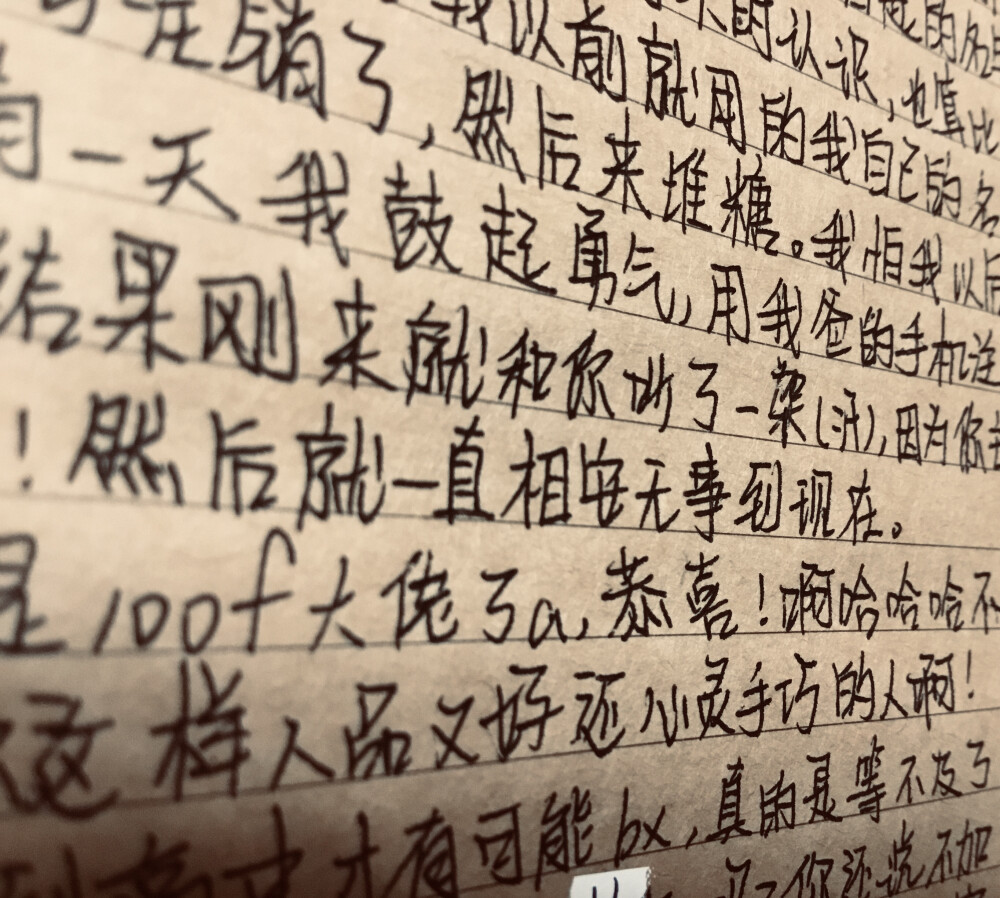 的认识，也算比
注销了，我以前就用的我自己的名
一天我鼓起勇气，然后来堆糖。我怕我以后
结果刚来就和你吵了一架(汗)，因为你
用我爸的手机注
！然后就一直相安无事到现在。
是100f大佬了a，恭喜！啊哈哈哈不
这样人品又好还心灵手巧的人啊！
才有可能bx，真的是等不及了
你还说不加